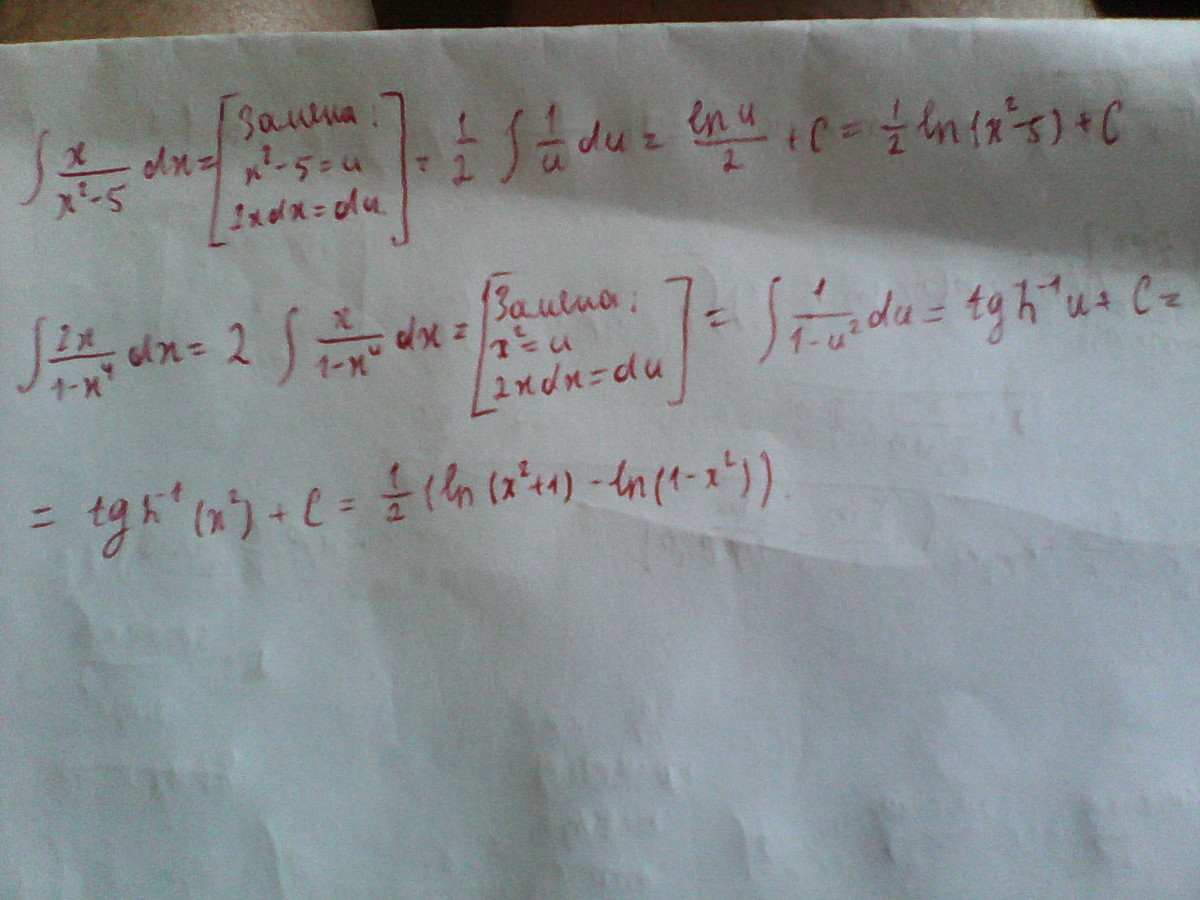 ∫ x/(x²-5) dx = [Замена: x²-5=u 2xdx=du] = 1/2 ∫ 1/u du = ln u/2 + C = 1/2 ln(x²-5) + C
∫ 2x/(1-x⁴) dx = 2 ∫ x/(1-x⁴) dx = [Замена: x²=u 2xdx=du] = ∫ 1/(1-u²) du = tgh⁻¹ u + C =
= tgh⁻¹ (x²) + C = 1/2 (ln (x²+1) - ln (1-x²))